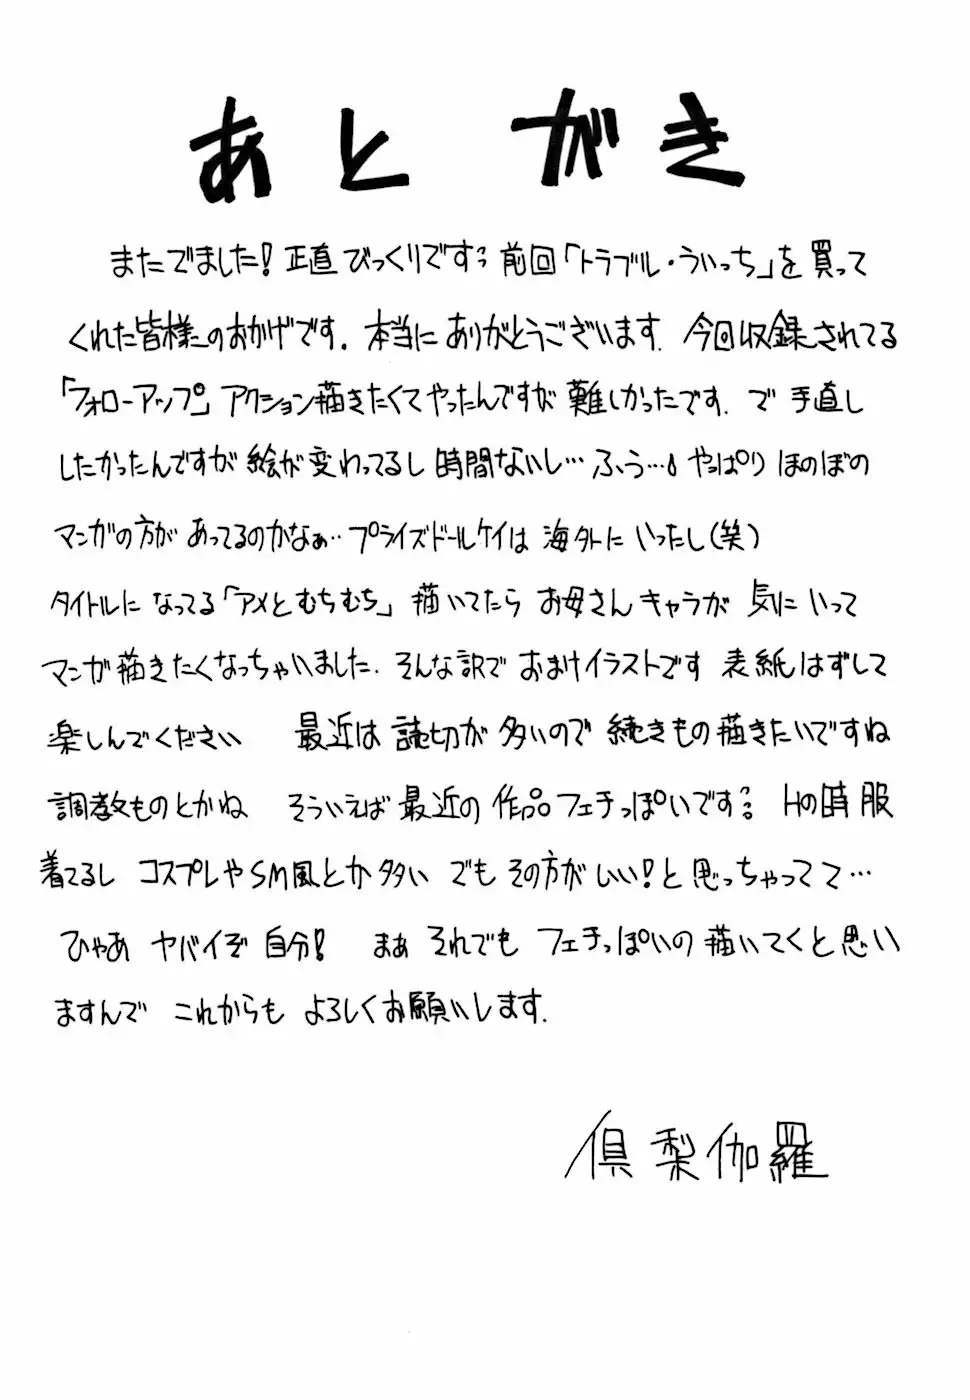 あとがき
またでました!正直びっくりです 前回「トラブル・ういっち」を買って
くれた皆様のおかげです。本当にありがとうございます。今回収録されてる
「フォローアップ」アクション描きたくてやったんですが難しかったです。で手直し
したかったんですが絵が変わってるし時間ないし…ふう…やっぱりほのぼの
マンガの方があってるのかなぁ…プライズドールケイは海外にいったし(笑)
タイトルになってる「アメとむちむち」描いてたらお母さんキャラが気にいって
マンガ描きたくなっちゃいました。そんな訳でおまけイラストです 表紙はずして
楽しんでください 最近は読切が多いので続きもの描きたいですね
調教ものとかね そういえば最近の作品フェチっぽいです Hの時服
着てるし コスプレやSM風とか多い でもその方がいい!と思っちゃってて…
ひゃあ ヤバイぞ自分! まぁそれでもフェチっぽいの描いてくと思い
ますんで これからもよろしくお願いします。
倶梨伽羅